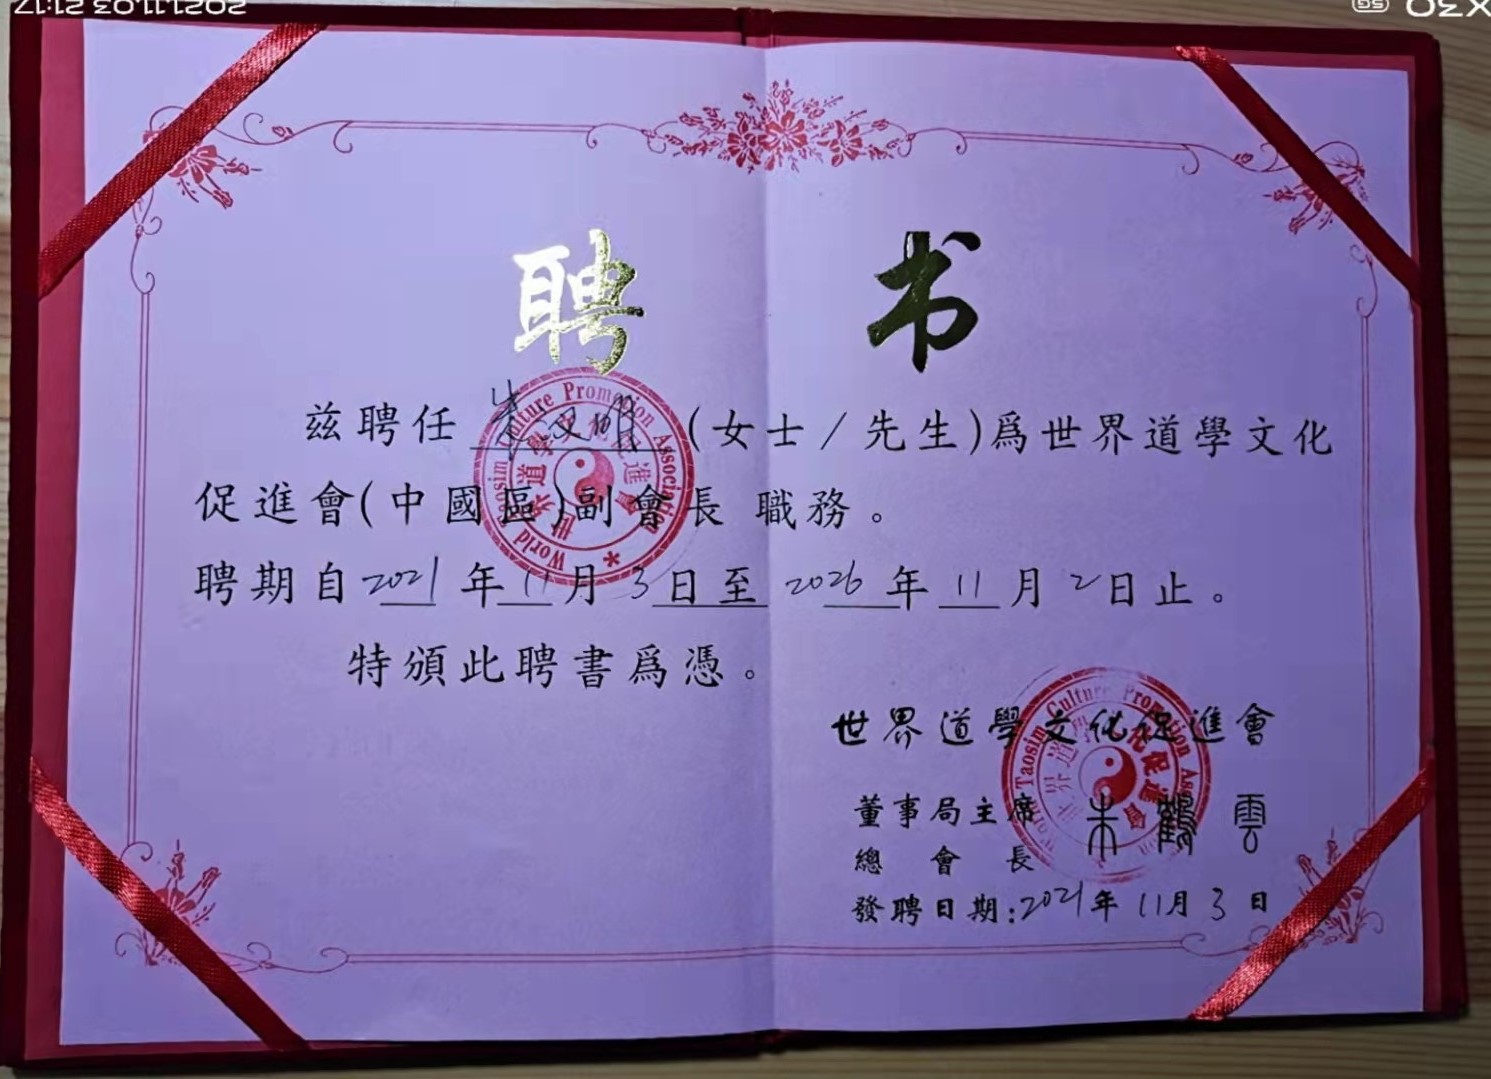 2021.11.03 21:17
X30 5G
聘书
兹聘任 朱文彬 (女士/先生)爲世界道學文化
促進會(中國區)副會長 職務。
聘期自2021年11月3日至2026年11月2日止。
特頒此聘書爲憑。
世界道學文化促進會
董事局主席 朱鶴雲
總會長
發聘日期:2021年11月3日
World Taosim Culture Promotion Association
世界道學文化促進會
World Taosim Culture Promotion Ass
世界道學文化促進會